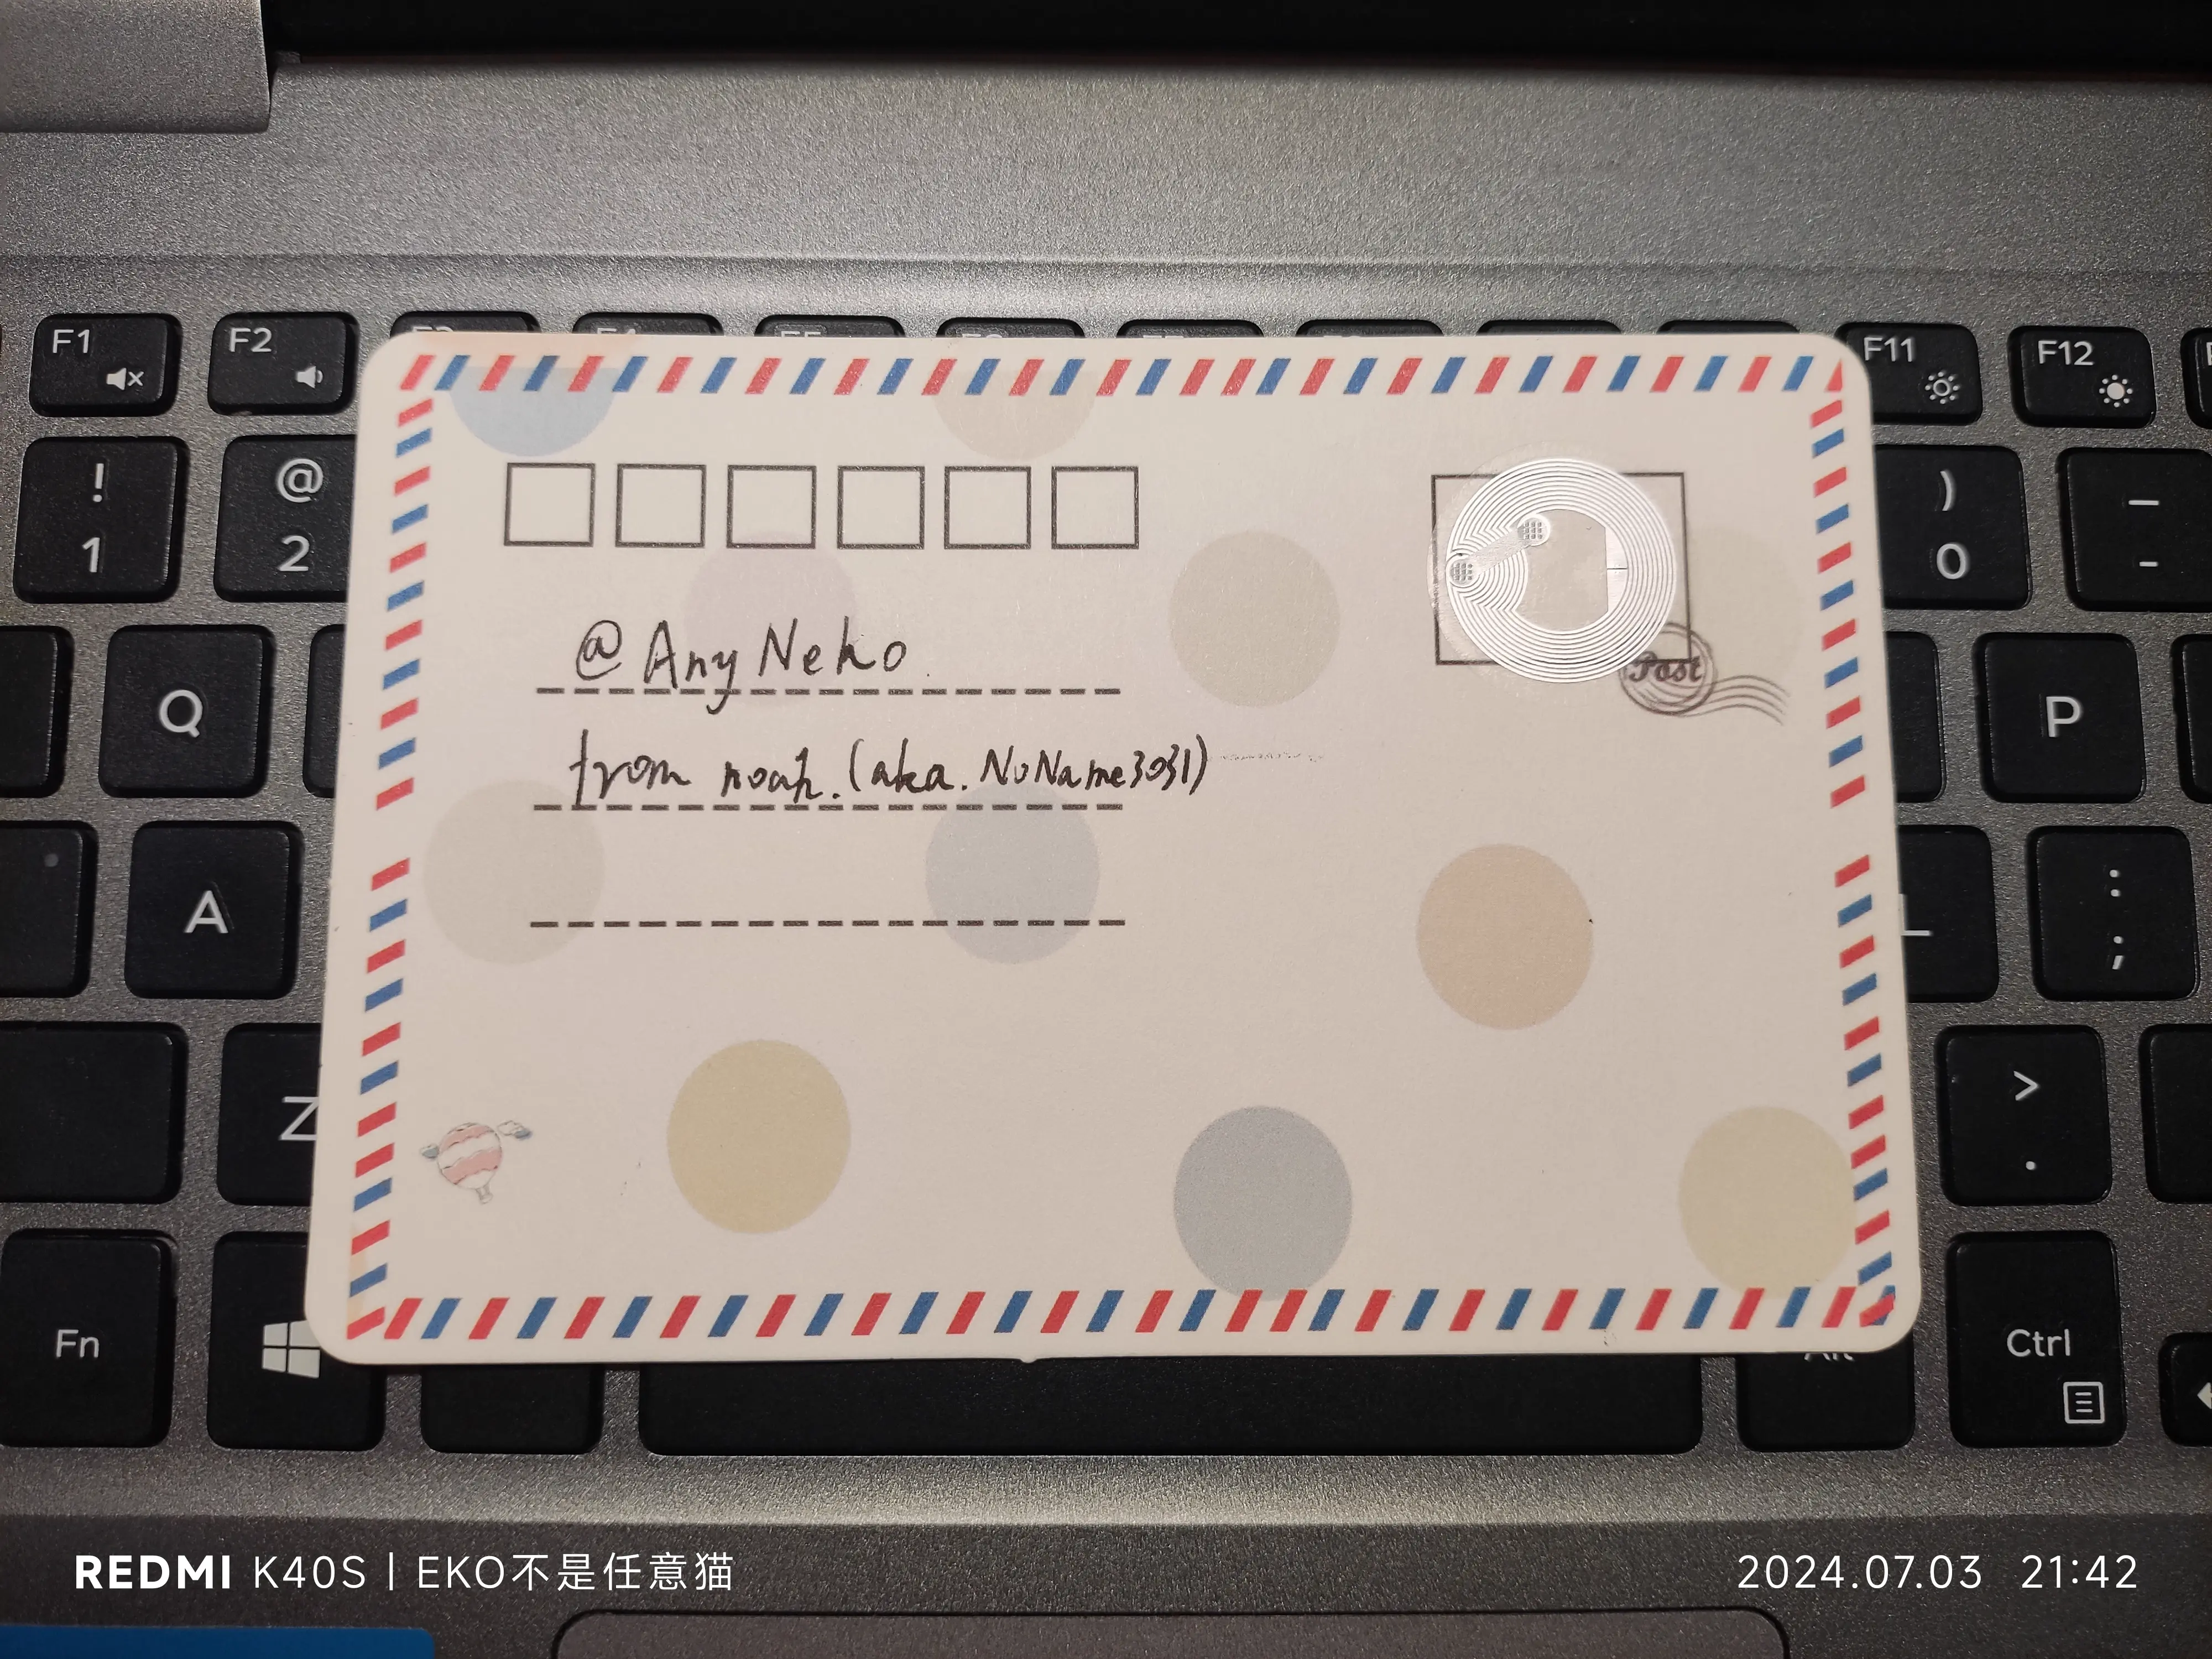 F1
F2
F11
F12
!
1
@
2
)
0
Q
P
A
:
;
Z
>
.
Fn
Alt
Ctrl
@AnyNeko
from noah.(aka.NoName3031)
Post
REDMI K40S | EKO不是任意猫
2024.07.03 21:42